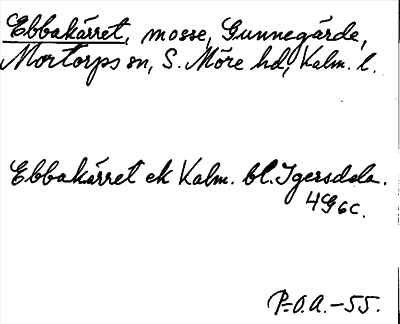 Ebbakärret, mosse, Gunnegärde,
Mortorps sn, S. Möre hd, Kalm. l.
Ebbakärret ek Kalm. bl. Igersdela.
4G6c.
P-O.A.-55.